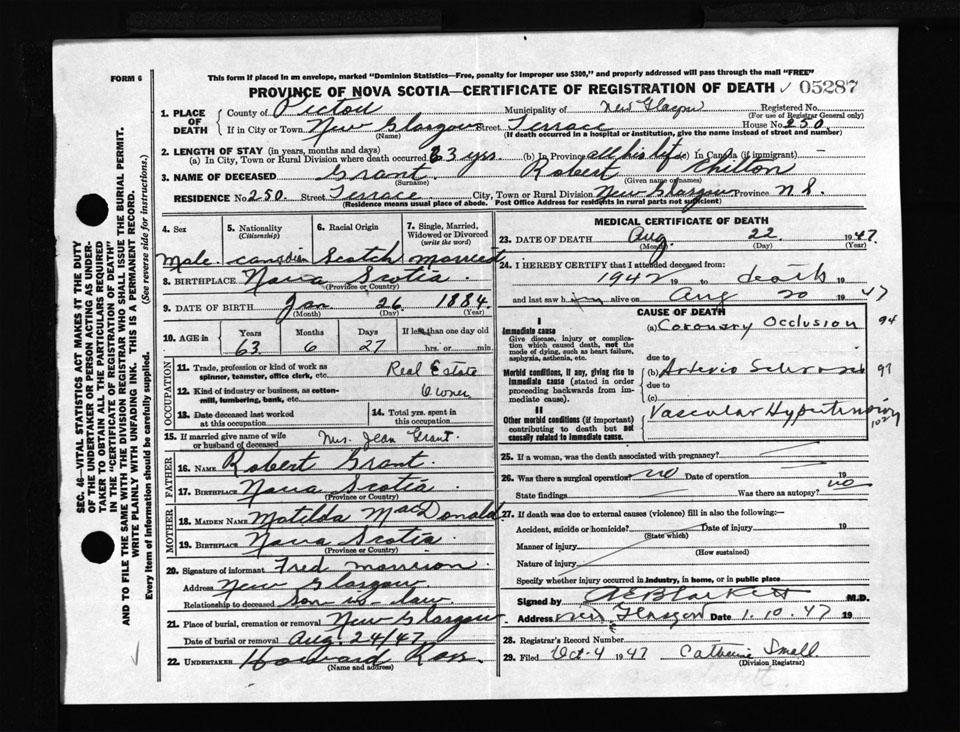 FORM 6
This form if placed in an envelope, marked "Dominion Statistics—Free, penalty for improper use $300," and properly addressed will pass through the mail "FREE"
PROVINCE OF NOVA SCOTIA—CERTIFICATE OF REGISTRATION OF DEATH 05287
1. PLACE OF DEATH County of Pictou Municipality of New Glasgow Registered No.
(For use of Registrar General only)
If in City or Town New Glasgow Street Terrace House No. 250.
(Name) (If death occurred in a hospital or institution, give the name instead of street and number)
2. LENGTH OF STAY (in years, months and days)
(a) In City, Town or Rural Division where death occurred 63 yrs. (b) In Province all his life (c) In Canada (if immigrant)
3. NAME OF DECEASED Grant Robert
(Surname) (Given name or names)
RESIDENCE No. 250 Street Terrace City, Town or Rural Division New Glasgow Province N.S.
(Residence means usual place of abode. Post Office Address for residents in rural parts not sufficient)
4. Sex 5. Nationality (Citizenship) 6. Racial Origin 7. Single, Married, Widowed or Divorced (write the word)
Male Canadian Scotch married
8. BIRTHPLACE Nova Scotia
(Province or Country)
9. DATE OF BIRTH Jan 26 1884
(Month) (Day) (Year)
10. AGE in Years Months Days If less than one day old
63 6 27 hrs. or min.
OCCUPATION
11. Trade, profession or kind of work as spinner, teamster, office clerk, etc. Real Estate
12. Kind of industry or business, as cotton-mill, lumbering, bank, etc. Owner
13. Date deceased last worked at this occupation 14. Total yrs. spent in this occupation
15. If married give name of wife or husband of deceased Mrs. Jean Grant.
FATHER
16. NAME Robert Grant.
17. BIRTHPLACE Nova Scotia
(Province or Country)
MOTHER
18. MAIDEN NAME Matilda MacDonald.
19. BIRTHPLACE Nova Scotia
(Province or Country)
20. Signature of informant Fred Morrison
Address New Glasgow
Relationship to deceased Son-in-law.
21. Place of burial, cremation or removal New Glasgow
Date of burial or removal Aug. 24/47.
22. UNDERTAKER Howard Ross.
(Name and address)
MEDICAL CERTIFICATE OF DEATH
23. DATE OF DEATH Aug. 22 1947.
(Month) (Day) (Year)
24. I HEREBY CERTIFY that I attended deceased from:
1942 19 to death 19
and last saw him alive on Aug 20 1947
CAUSE OF DEATH
I
Immediate cause
Give disease, injury or complication which caused death, not the mode of dying, such as heart failure, asphyxia, asthenia, etc.
(a) Coronary Occlusion 94
due to
Morbid conditions, if any, giving rise to immediate cause (stated in order proceeding backwards from immediate cause).
(b) Arterio Sclerosis 97
due to
(c)
II
Other morbid conditions (if important) contributing to death but not causally related to immediate cause.
Vascular Hypertension
102
25. If a woman, was the death associated with pregnancy?
26. Was there a surgical operation? no Date of operation 19
State findings Was there an autopsy? no
27. If death was due to external causes (violence) fill in also the following:—
Accident, suicide or homicide? Date of injury 19
(State which)
Manner of injury
(How sustained)
Nature of injury
Specify whether injury occurred in Industry, in home, or in public place
Signed by M.D.
Address New Glasgow Date 1.10.47 19
28. Registrar's Record Number
29. Filed Oct-4 1947 Catherine Small.
(Division Registrar)
SEC. 46—VITAL STATISTICS ACT MAKES IT THE DUTY OF THE UNDERTAKER OR PERSON ACTING AS UNDERTAKER TO OBTAIN ALL THE PARTICULARS REQUIRED IN THE "CERTIFICATE OF REGISTRATION OF DEATH" AND TO FILE THE SAME WITH THE DIVISION REGISTRAR WHO SHALL ISSUE THE BURIAL PERMIT.
WRITE PLAINLY WITH UNFADING INK. THIS IS A PERMANENT RECORD.
Every item of Information should be carefully supplied. (See reverse side for instructions.)